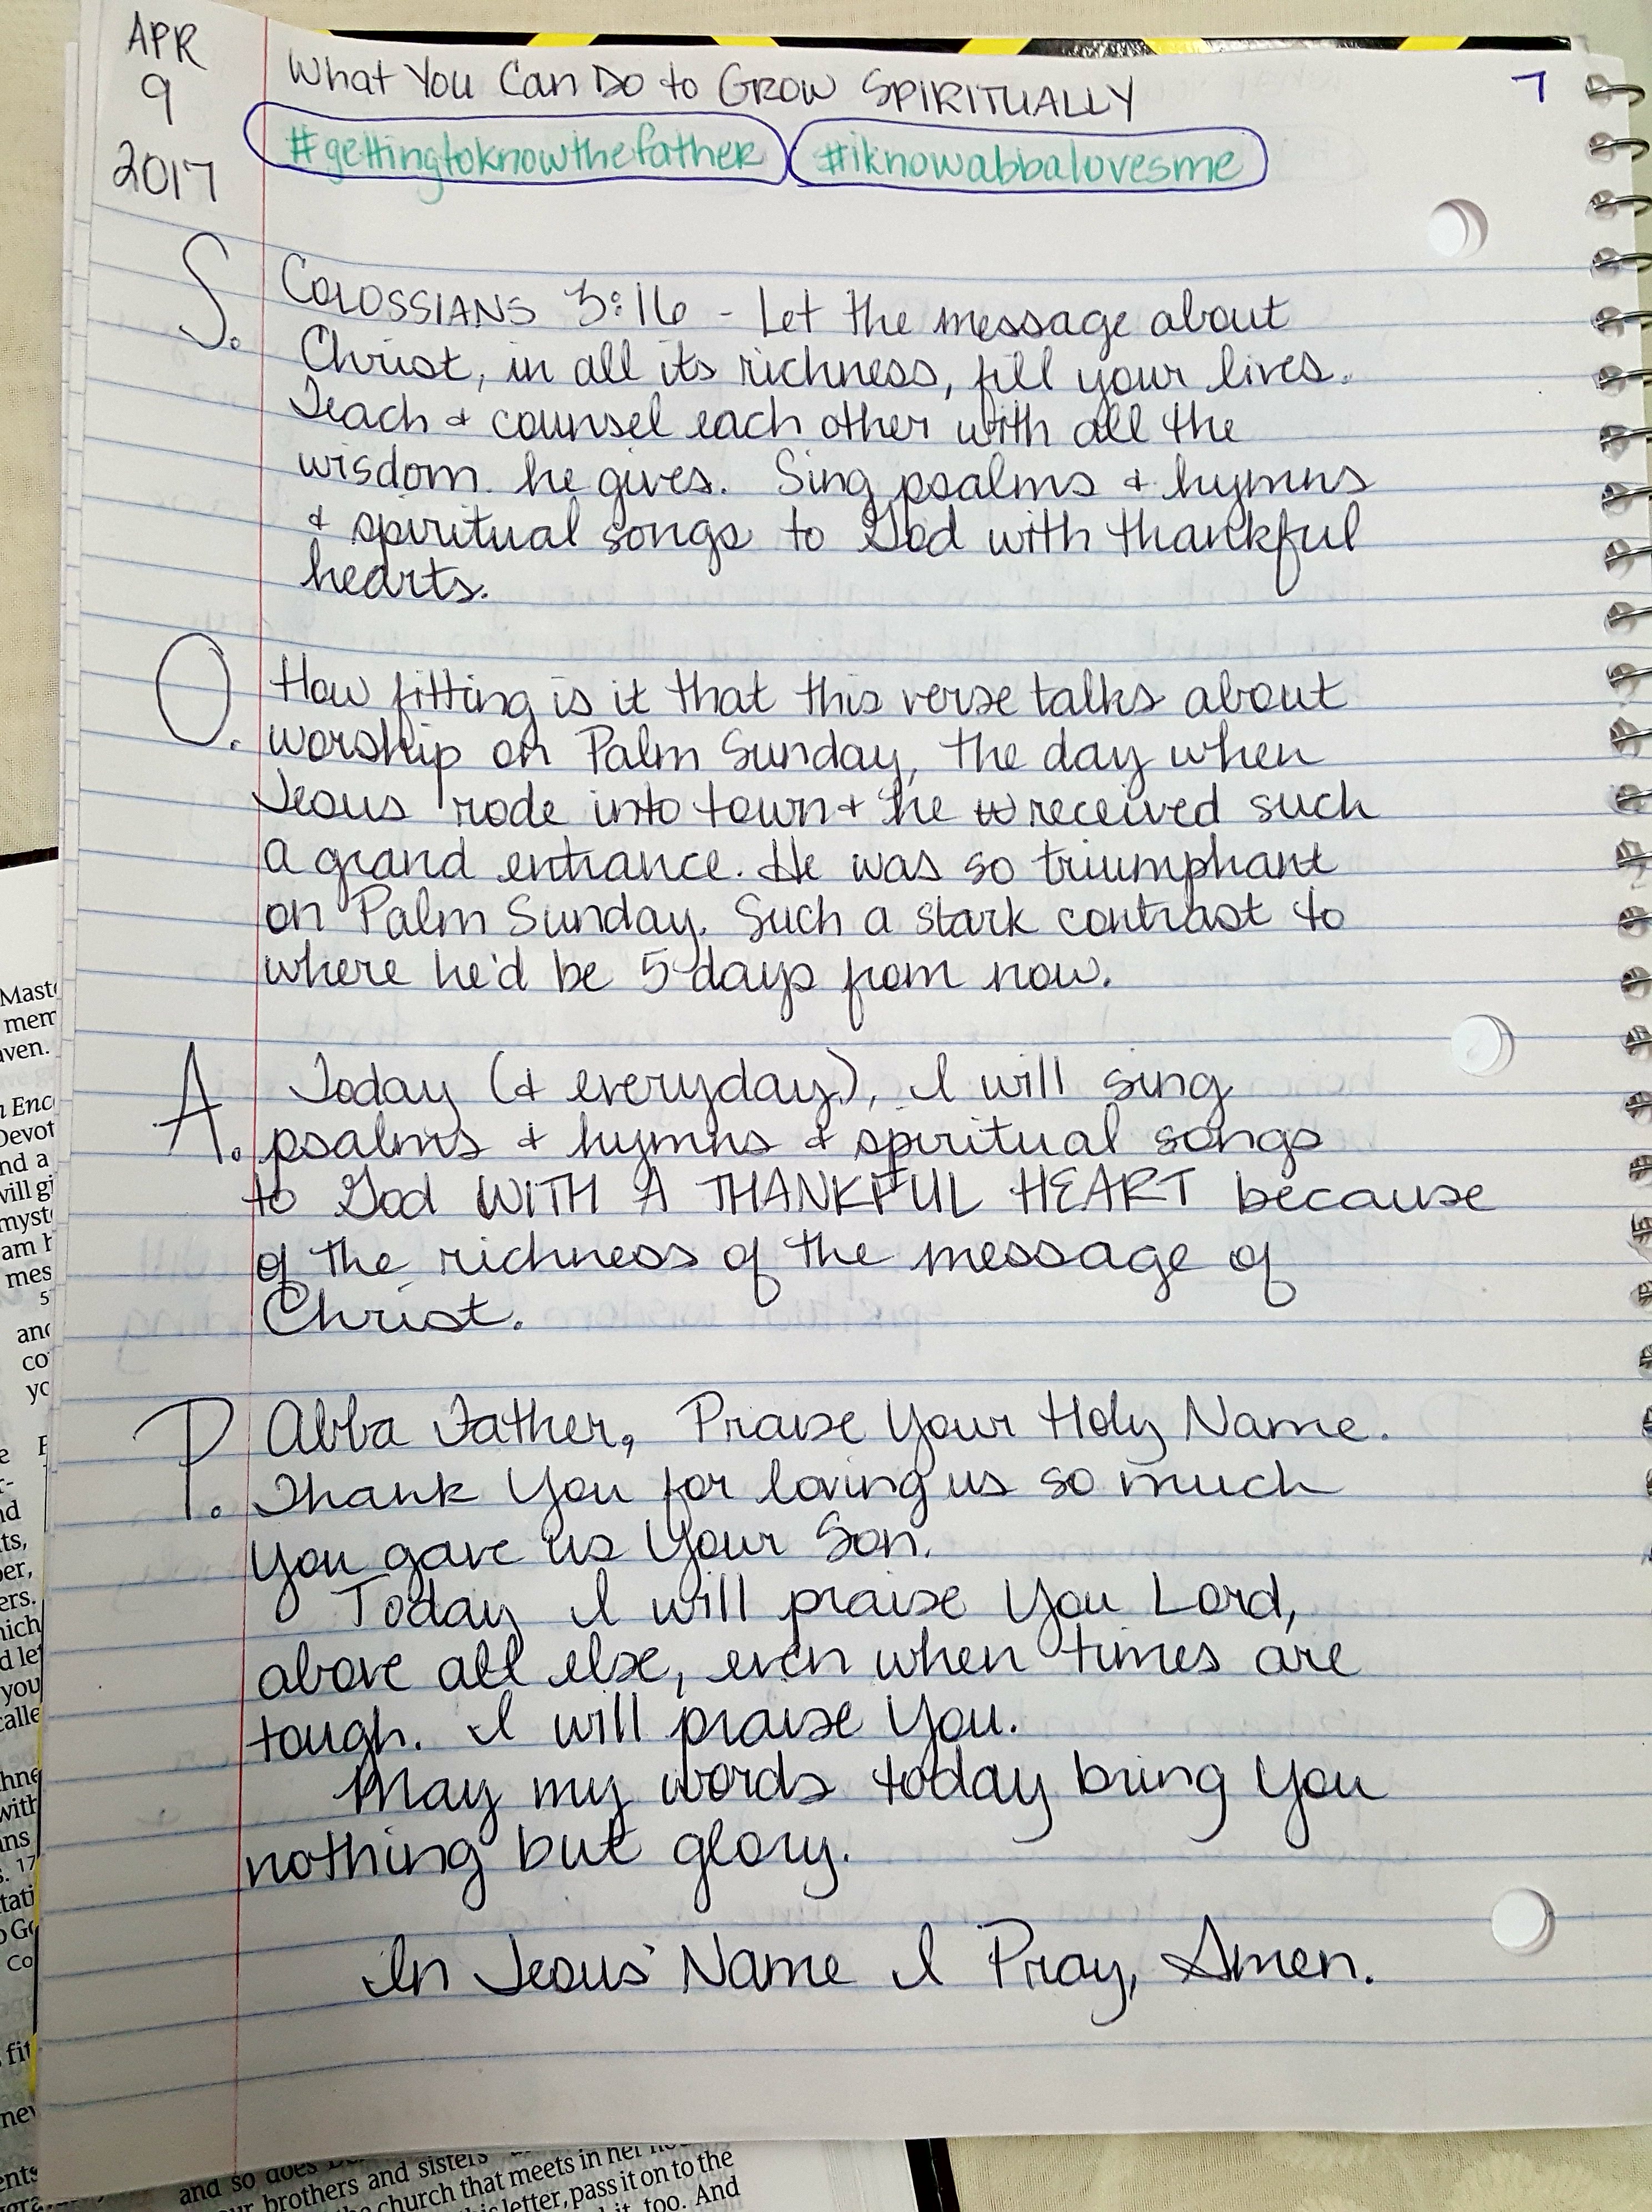 APR
9
2017
What You Can Do to GROW SPIRITUALLY
7
#gettingtoknowthefather #iknowabbalovesme
S. COLOSSIANS 3:16 - Let the message about
Christ, in all its richness, fill your lives.
Teach & counsel each other with all the
wisdom he gives. Sing psalms & hymns
& spiritual songs to God with thankful
hearts.
O. How fitting is it that this verse talks about
worship on Palm Sunday, the day when
Jesus rode into town & he received such
a grand entrance. He was so triumphant
on Palm Sunday. Such a stark contrast to
where he'd be 5 days from now.
A. Today (& everyday), I will sing
psalms & hymns & spiritual songs
to God WITH A THANKFUL HEART because
of the richness of the message of
Christ.
P. Abba Father, Praise Your Holy Name.
Thank You for loving us so much
you gave us Your Son.
Today I will praise You Lord,
above all else, even when times are
tough. I will praise You.
May my words today bring You
nothing but glory.
In Jesus' Name I Pray, Amen.
and so does
brothers and sisters
church that meets in her
letter, pass it on to the
it, too. And